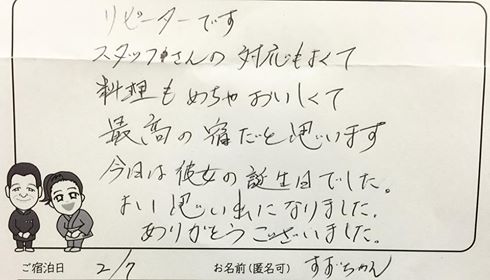 リピーターです
スタッフさんの対応もよくて
料理もめちゃおいしくて
最高の宿だと思います
今日は彼女の誕生日でした。
よい思い出になりました。
ありがとうございました。
ご宿泊日 2/7 お名前(匿名可) すずちゃん